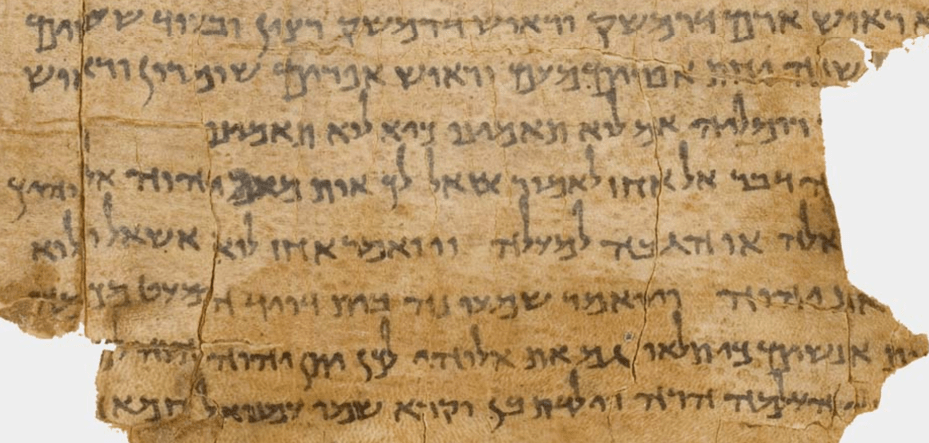 ראוש ארם דרמשק וראוש דרמשק רצין ובעוד ששים
שנה יחת אפרים מעם וראוש אפרים שומרון וראוש
רמליה אם לוא תאמינו כיא לוא תאמינו
דבר אל אחז לאמור שאל לך אות מאת יהוה אלוהיך
שאלה או הגבה למעלה ויואמר אחז לוא אשאל ולוא
את יהוה ויואמר שמעו נא בית דויד המעט מכם
אנשים כי תלאו גם את אלוהי לכן יתן יהוה
העלמה הרה וילדת בן וקרא שמו עמנואל חמא